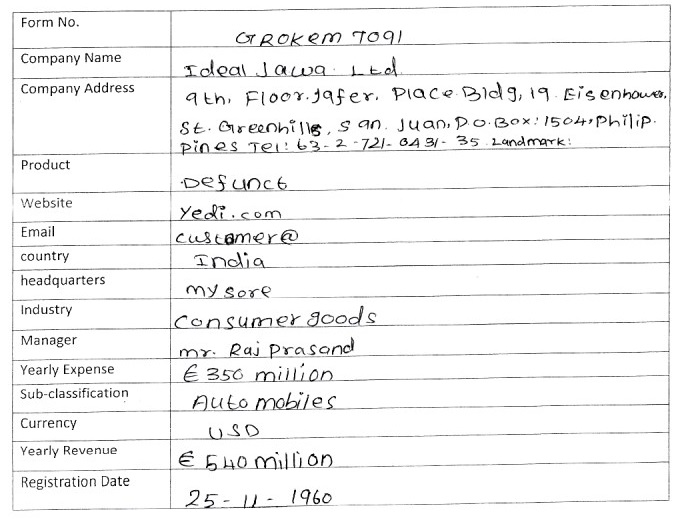 Form No. GROKEM TO91
Company Name Ideal Jawa Ltd
Company Address 9th, Floor.Jafer, Place Bldg, 19. Eisenhower,
St. Greenhills, San. Juan, P.O.Box: 1504, Philip.
pines Tel: 63-2-721-0431-35. Landmark:
Product Defunct
Website Yedi.com
Email customer@
country India
headquarters mysore
Industry consumer goods
Manager mr. Raj Prasand
Yearly Expense € 350 million
Sub-classification Automobiles
Currency USD
Yearly Revenue € 540 million
Registration Date 25-11-1960